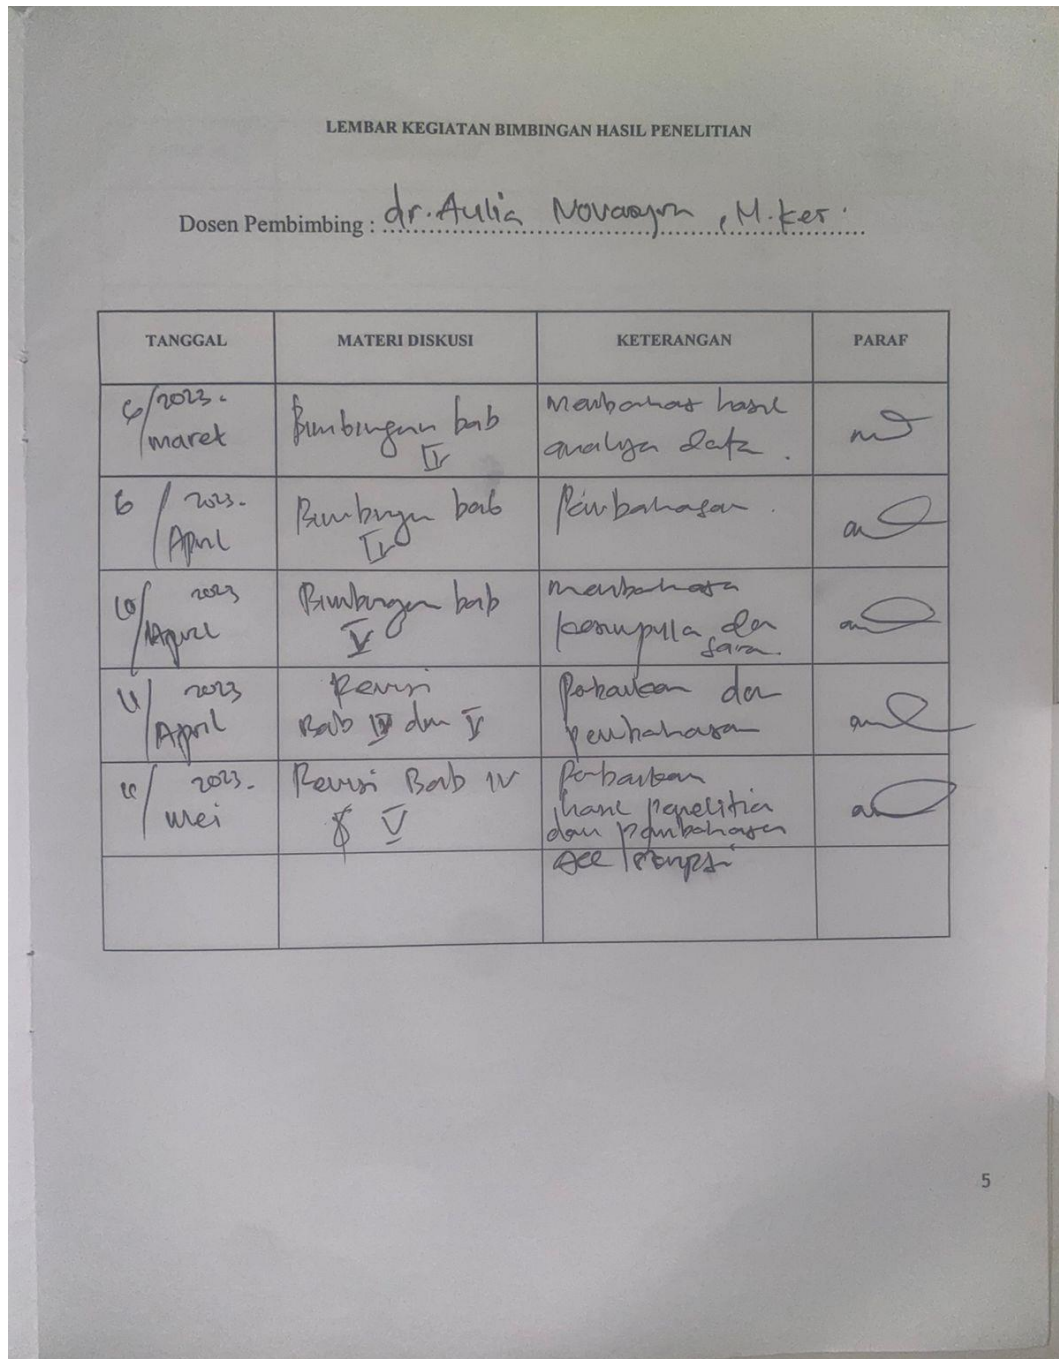 LEMBAR KEGIATAN BIMBINGAN HASIL PENELITIAN
Dosen Pembimbing : dr. Aulia , M.Kes.
TANGGAL MATERI DISKUSI KETERANGAN PARAF
6/2023. maret
Bimbingan bab IV
Membahas hasil
analisa data .
6 / 2023. April
Bimbingan bab IV
Pembahasan .
10/ 2023 April
Bimbingan bab V
membahas
kesimpulan dan
saran.
2023 April
Revisi
Bab IV dan V
Perbaikan dan
pembahasan
2023. mei
Revisi Bab IV
& V
Perbaikan
hasil penelitian
dan pembahasan
ACC
5